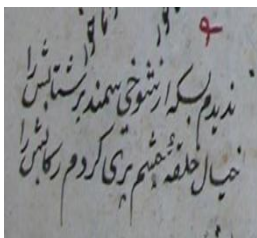 ندیدم بسکه از شوخی سمند پرشتابش را
خیال حلقهٔ چشم پری کردم رکابش را